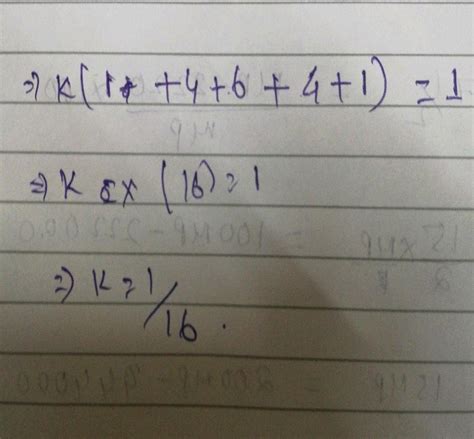 ⇒ K(1 + 4 + 6 + 4 + 1) = 1
⇒ K × (16) = 1
⇒ K = 1/16.